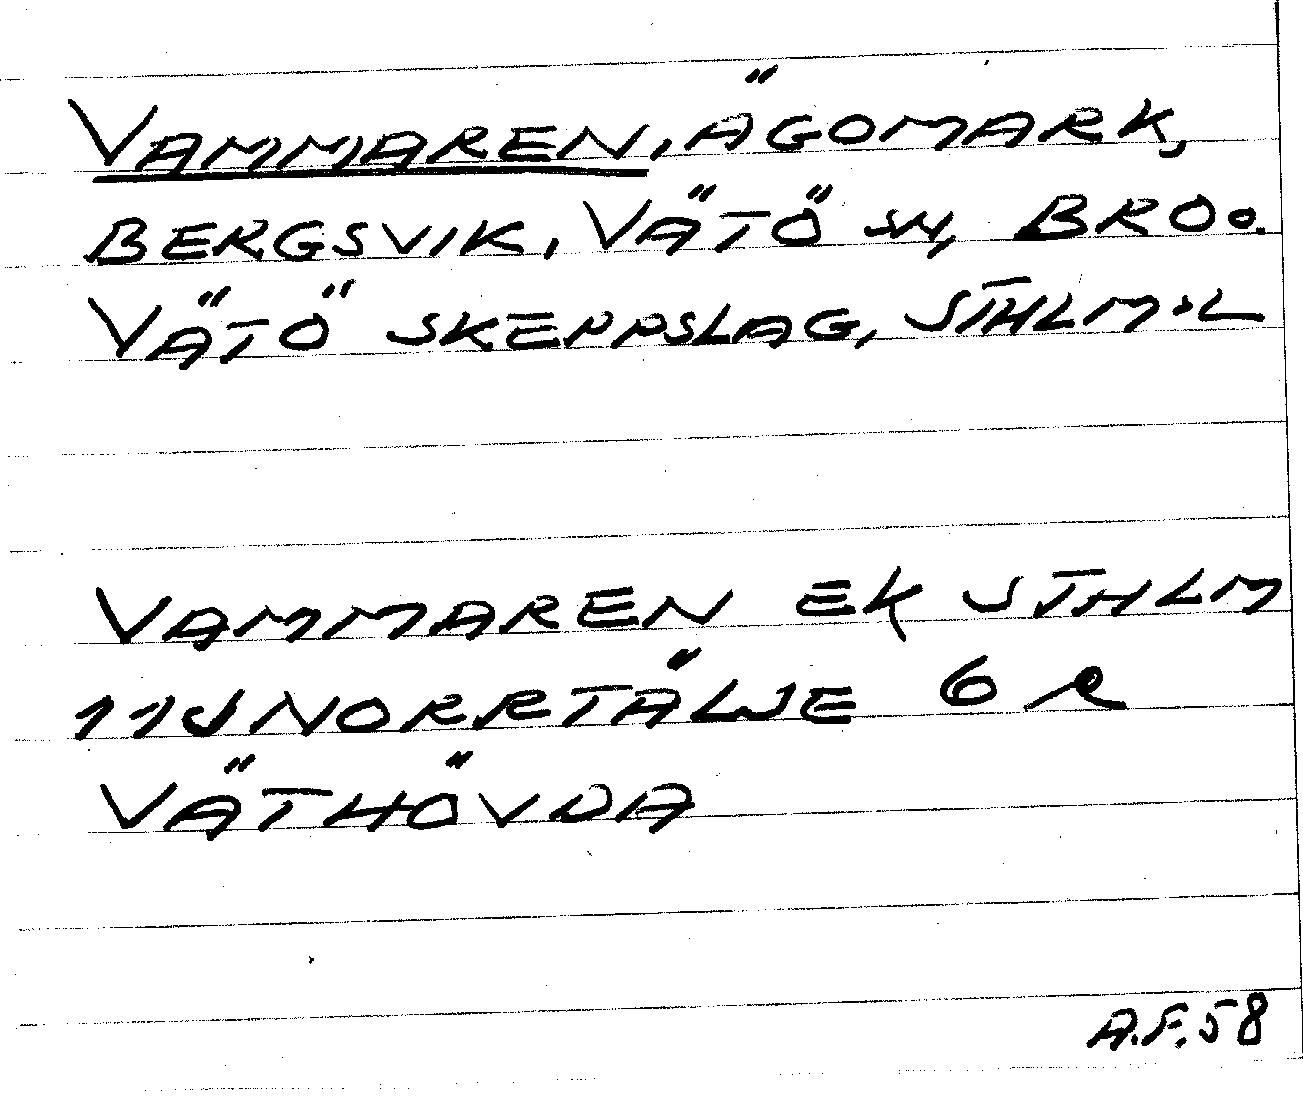 VAMMAREN, ÄGOMARK,
BERGSVIK, VÄTÖ SN, BRO o.
VÄTÖ SKEPPSLAG, STHLM.L
VAMMAREN EK STHLM
11J NORRTÄLJE 6 R
VÄTHÖVDA
A.F.58